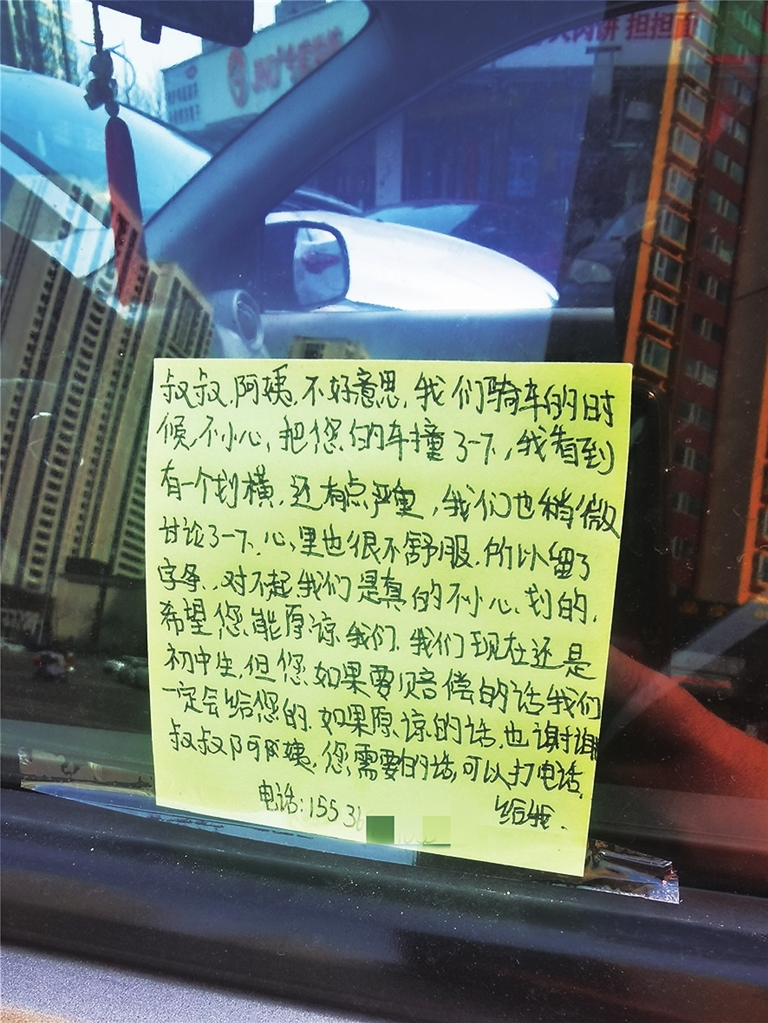 肉饼 担担面
叔叔,阿姨,不好意思,我们骑车的时
候,不小心,把您的车撞了一下,我看到
有一个划横,还有点严重,我们也稍微
讨论了一下,心里也很不舒服.所以留了
字条,对不起我们是真的不小心划的,
希望您能原谅我们.我们现在还是
初中生,但您如果要赔偿的话我们
一定会给您的.如果原谅的话,也谢谢
叔叔阿阿姨,您需要的话,可以打电话
给我.
电话:155 3